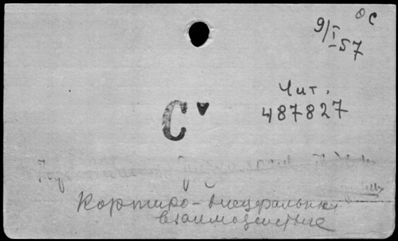 ос
9/I-57
Чит.
487827
С
Кортико-висцеральные
взаимодействие